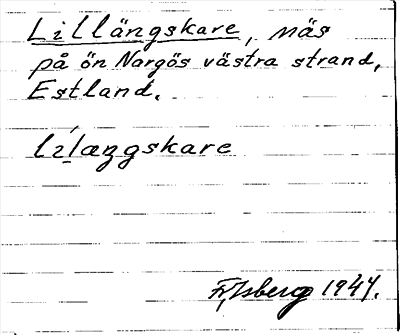 Lillängskare, näs
på ön Nargös västra strand,
Estland.
lılæŋgskare
1944.